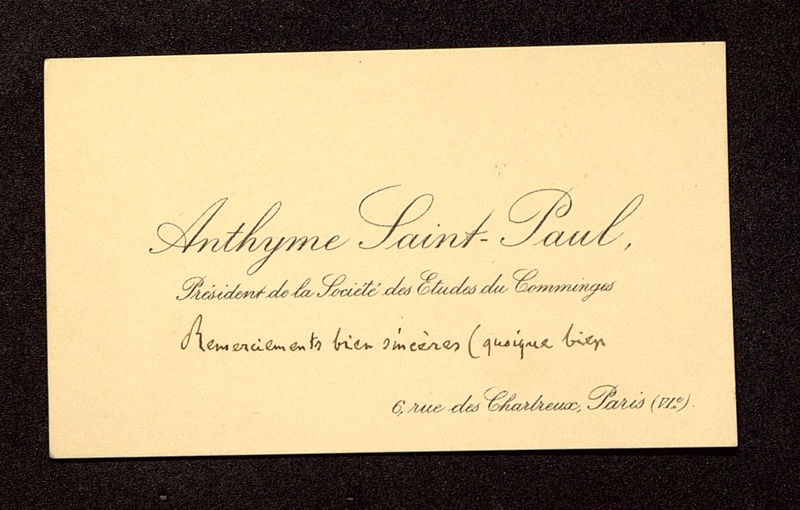 Anthyme Saint-Paul,
Président de la Société des Etudes du Comminges
Remerciements bien sincères (quoique bien
6, rue des Chartreux, Paris (VIe).